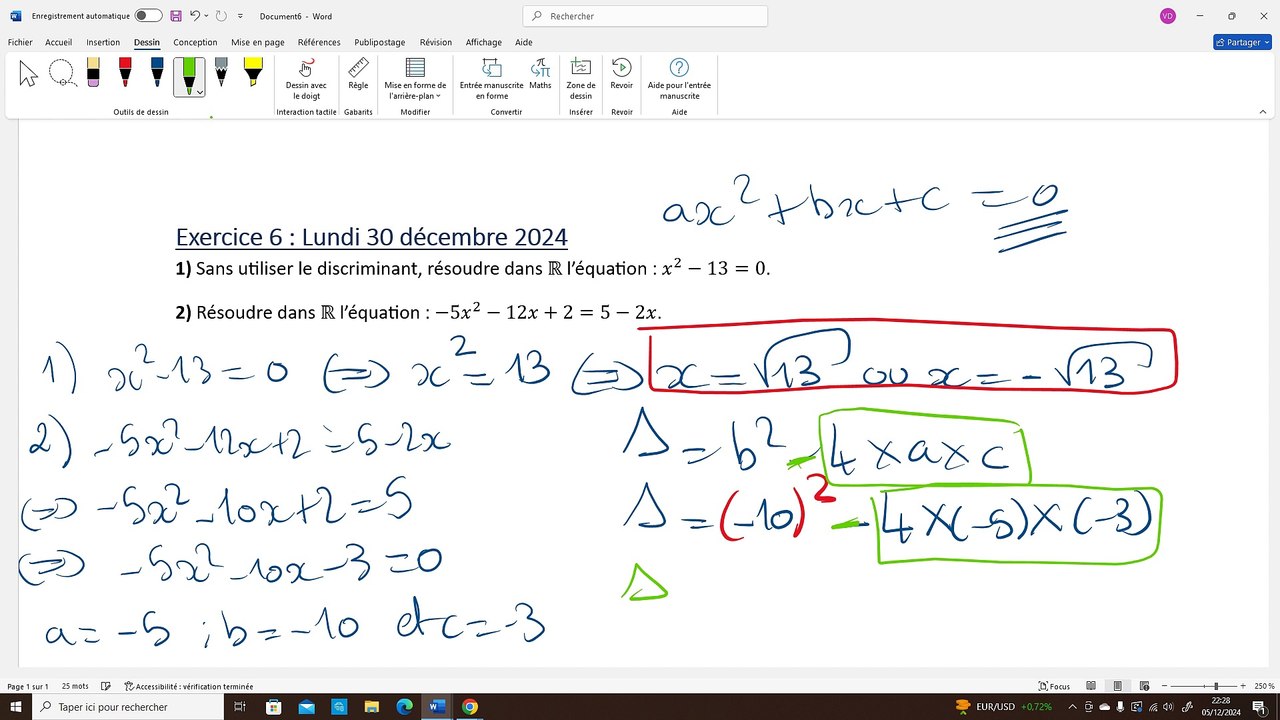 Enregistrement automatique
Document6 - Word
Rechercher
VD
Fichier Accueil Insertion Dessin Conception Mise en page Références Publipostage Révision Affichage Aide
Partager
Dessin avec le doigt
Règle
Mise en forme de l'arrière-plan
Entrée manuscrite en forme
Maths
Zone de dessin
Revoir
Aide pour l'entrée manuscrite
Outils de dessin
Interaction tactile
Gabarits
Modifier
Convertir
Insérer
Revoir
Aide
ax² + bx + c = 0
Exercice 6 : Lundi 30 décembre 2024
1) Sans utiliser le discriminant, résoudre dans ℝ l'équation : x² − 13 = 0.
2) Résoudre dans ℝ l'équation : −5x² − 12x + 2 = 5 − 2x.
1) x² - 13 = 0 (=) x² = 13 (=) x = √13 ou x = - √13
2) -5x² - 12x + 2 = 5 - 2x
(=) -5x² - 10x + 2 = 5
(=) -5x² - 10x - 3 = 0
a = -5 ; b = -10 et c = -3
Δ = b² - 4 × a × c
Δ = (-10)² - 4 × (-5) × (-3)
Δ
Page 1 sur 1 25 mots Accessibilité : vérification terminée
Focus
250 %
Taper ici pour rechercher
EUR/USD +0,72%
22:28
05/12/2024